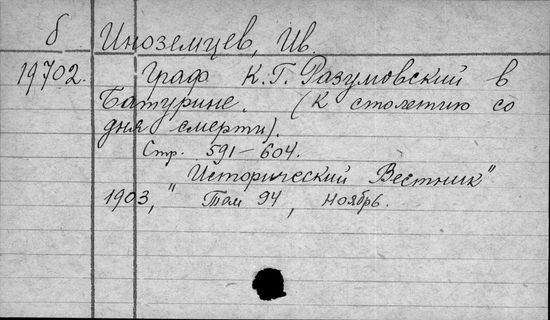 б Иноземцев, Ив.
19702. Граф К.Г. Разумовский в
Батурине. (К столетию со
дня смерти).
Стр. 591-604.
"Исторический Вестник"
1903, Том 94, ноябрь.